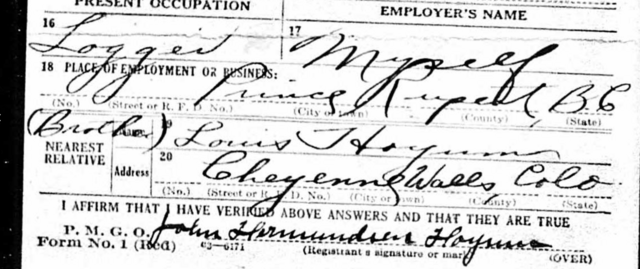 PRESENT OCCUPATION EMPLOYER'S NAME
16 Logger 17 Myself
18 PLACE OF EMPLOYMENT OR BUSINESS:
Prince Rupert, B.C
(No.) (Street or R. F. D. No.) (City or town) (County) (State)
(Brother) Name 19 Louis
NEAREST RELATIVE
Address 20 Cheyenne Wells Colo
(No.) (Street or R. F. D. No.) (City or town) (County) (State)
I AFFIRM THAT I HAVE VERIFIED ABOVE ANSWERS AND THAT THEY ARE TRUE
P. M. G. O.
Form No. 1 (Red) 03-6171 John Hermundsen
(Registrant's signature or mark) (OVER)